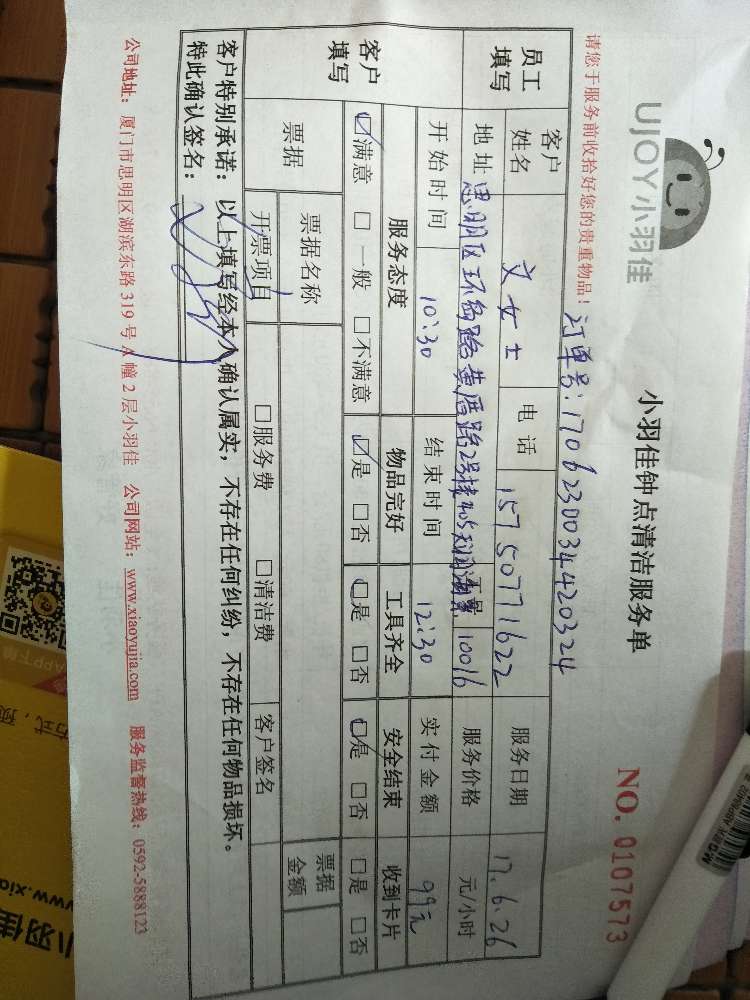 UJOY小羽佳
小羽佳钟点清洁服务单
NO. 0107573
请您于服务前收拾好您的贵重物品！
订单号：1706230034420324
员工填写
客户姓名 文女士 电话 15750771622 服务日期 17.6.26
地址 思明区环岛路黄厝路2号楼 员工号 10016 服务价格 元/小时
开始时间 10:30 结束时间 12:30 实付金额 99元
客户填写
服务态度 物品完好 工具齐全 安全结束 收到卡片
☑满意 □一般 □不满意 ☑是 □否 ☑是 □否 ☑是 □否 □是 □否
票据 票据名称 票据金额
开票项目 □服务费 □清洁费 客户签名
客户特别承诺：以上填写经本人确认属实，不存在任何纠纷，不存在任何物品损坏。
特此确认签名：
公司地址：厦门市思明区湖滨东路319号A幢2层小羽佳 公司网站：www.xiaoyujia.com 服务监督热线：0592-5888123